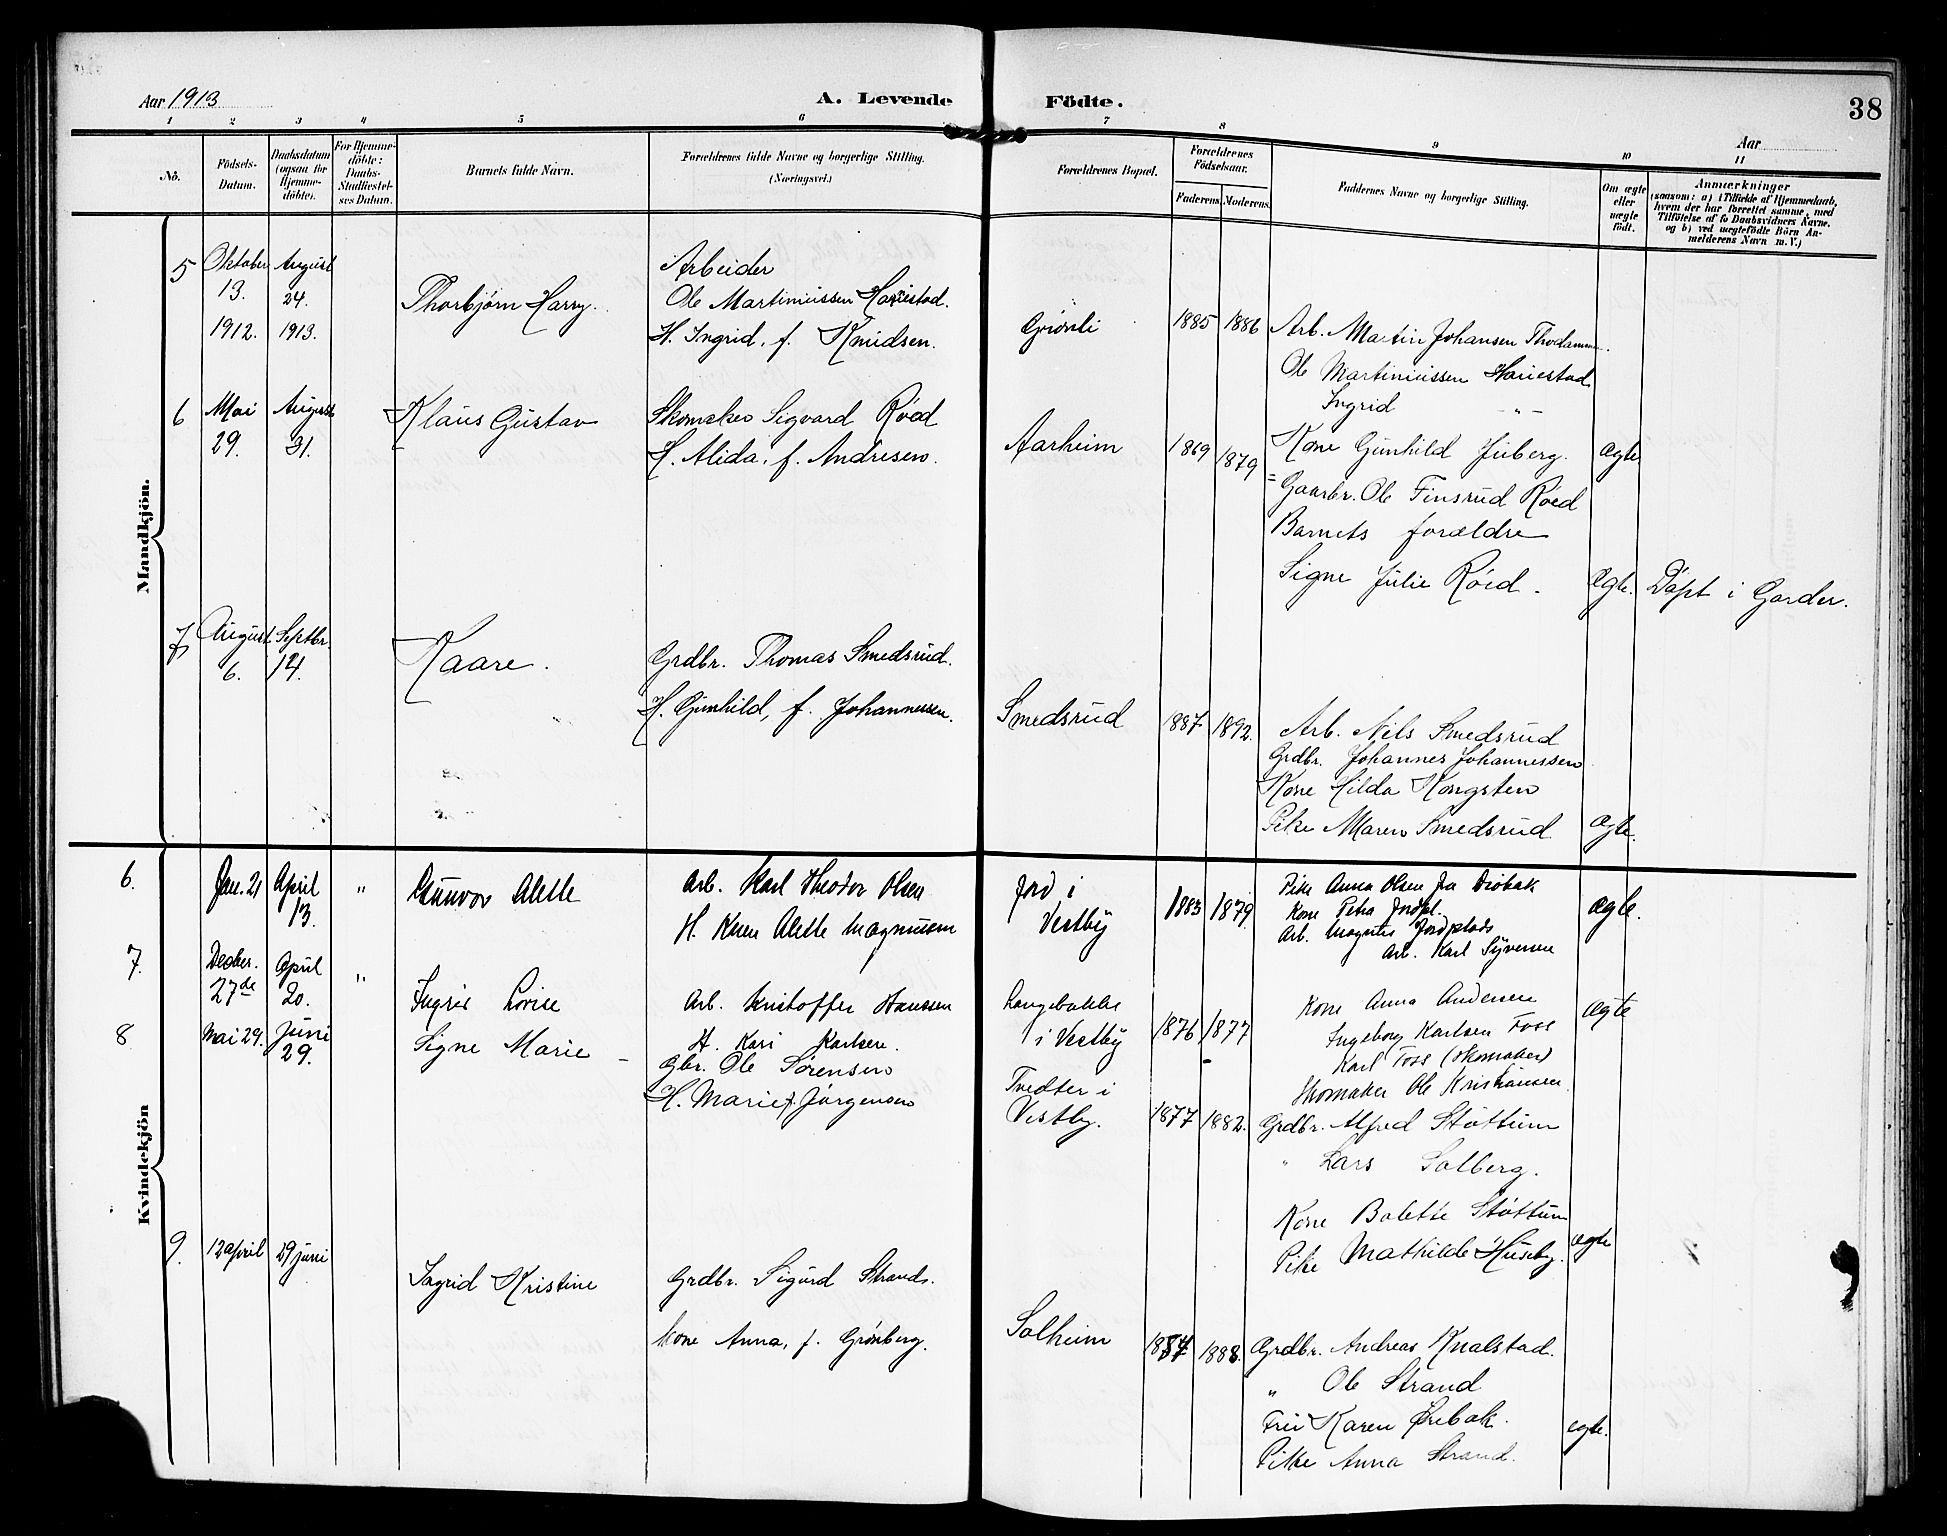 Aar 1913
A. Levende Födte.
38
Aar
1 2 3 4 5 6 7 8 9 10 11
No.
Födsels-Datum.
Daabsdatum (ogsaa for Hjemme-döbte).
For Hjemme-döbte: Daabs-Stadfæstel-ses Datum.
Barnets fulde Navn.
Forældrenes fulde Navne og borgerlige Stilling. (Næringsvei.)
Forældrenes Bopæl.
Forældrenes Födselsaar.
Faderens. Moderens.
Faddernes Navne og borgerlige Stilling.
Om ægte eller uægte födt.
Anmærkninger
(saasom: a) i Tilfælde af Hjemmedaab,
hvem der har forrettet samme, med
Tilföielse af to Daabsvidners Navne.
og b) ved uægtefödte Börn An-
melderens Navn m. V.)
Mandkjön.
5 Oktober 13. 1912. August 24. 1913.
Thorbjørn Harry.
Arbeider
Ole Martiniussen Hauestad.
H. Ingrid, f. Knudsen.
Grønli 1885 1886
Arb. Martin Johansen
Ole Martiniussen Hauestad
Ingrid - " -
6 Mai 29. August 31.
Klaus Gustav
Skomaker Sigvard Röed
H. Alida, f. Andresen.
Aarheim 1869 1879
Kone Gunhild Juberg. ægte
= Gaarbr. Ole Finsrud Röed
Barnets forældre
Signe Julie Röed. ægte. Döpt i Garder.
7 August 6. Septbr. 14.
Kaare.
Grdbr. Thomas Smedsrud.
H. Gunhild, f. Johannessen.
Smedsrud 1887 1892.
Arb. Nils Smedsrud
Grdbr. Johannes Johannessen
Kone Hilda Kongsten
Pike Maren Smedsrud ægte.
Kvindekjön
6. Jan. 21 April 13. "
Gunvor Alette
Arb. Karl Theodor Olsen
H. Karen Alette Magnussen
Jord i Vestby 1883 1879
Pike Anna Olsen fra Drøbak
Kone Petra Jordpl.
Arb. Magnus Jordplads
Arb. Karl Syversen
ægte.
7. Decber. 27de April 20. "
Ingrid Lovise
Arb. Kristoffer Hanssen
H. Kari Karlsen.
Langebakke i Vestby 1876 1877
Kone Anna Andersen
Ingeborg Karlsen Foss
Karl Foss (skomaker)
Skomaker Ole Kristiansen.
ægte
8 Mai 29. Juni 29.
Signe Marie
Gbr. Ole Sørensen
H. Marie f. Jørgensen
Tvedter i Vestby. 1877 1882.
Grdbr. Alfred Støttum
" Lars Solberg.
Kone Bolette Støttum
Pike Mathilde Huseby. ægte
9. 12 april 29 juni
Ingrid Kristine
Grdbr. Sigurd Strand.
kone Anna, f. Grønberg.
Solheim 1887 1888.
Grdbr. Andreas Knalstad.
" Ole Strand
Frü Karen Ørebak.
Pike Anna Strand.
ægte.